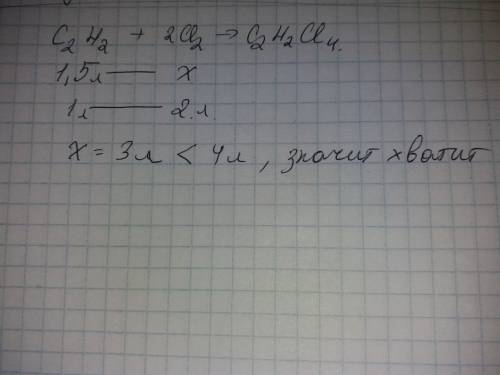 C₂H₂ + 2Cl₂ → C₂H₂Cl₄.
1,5л — x
1л — 2 л.
X = 3л < 4л, значит хватит